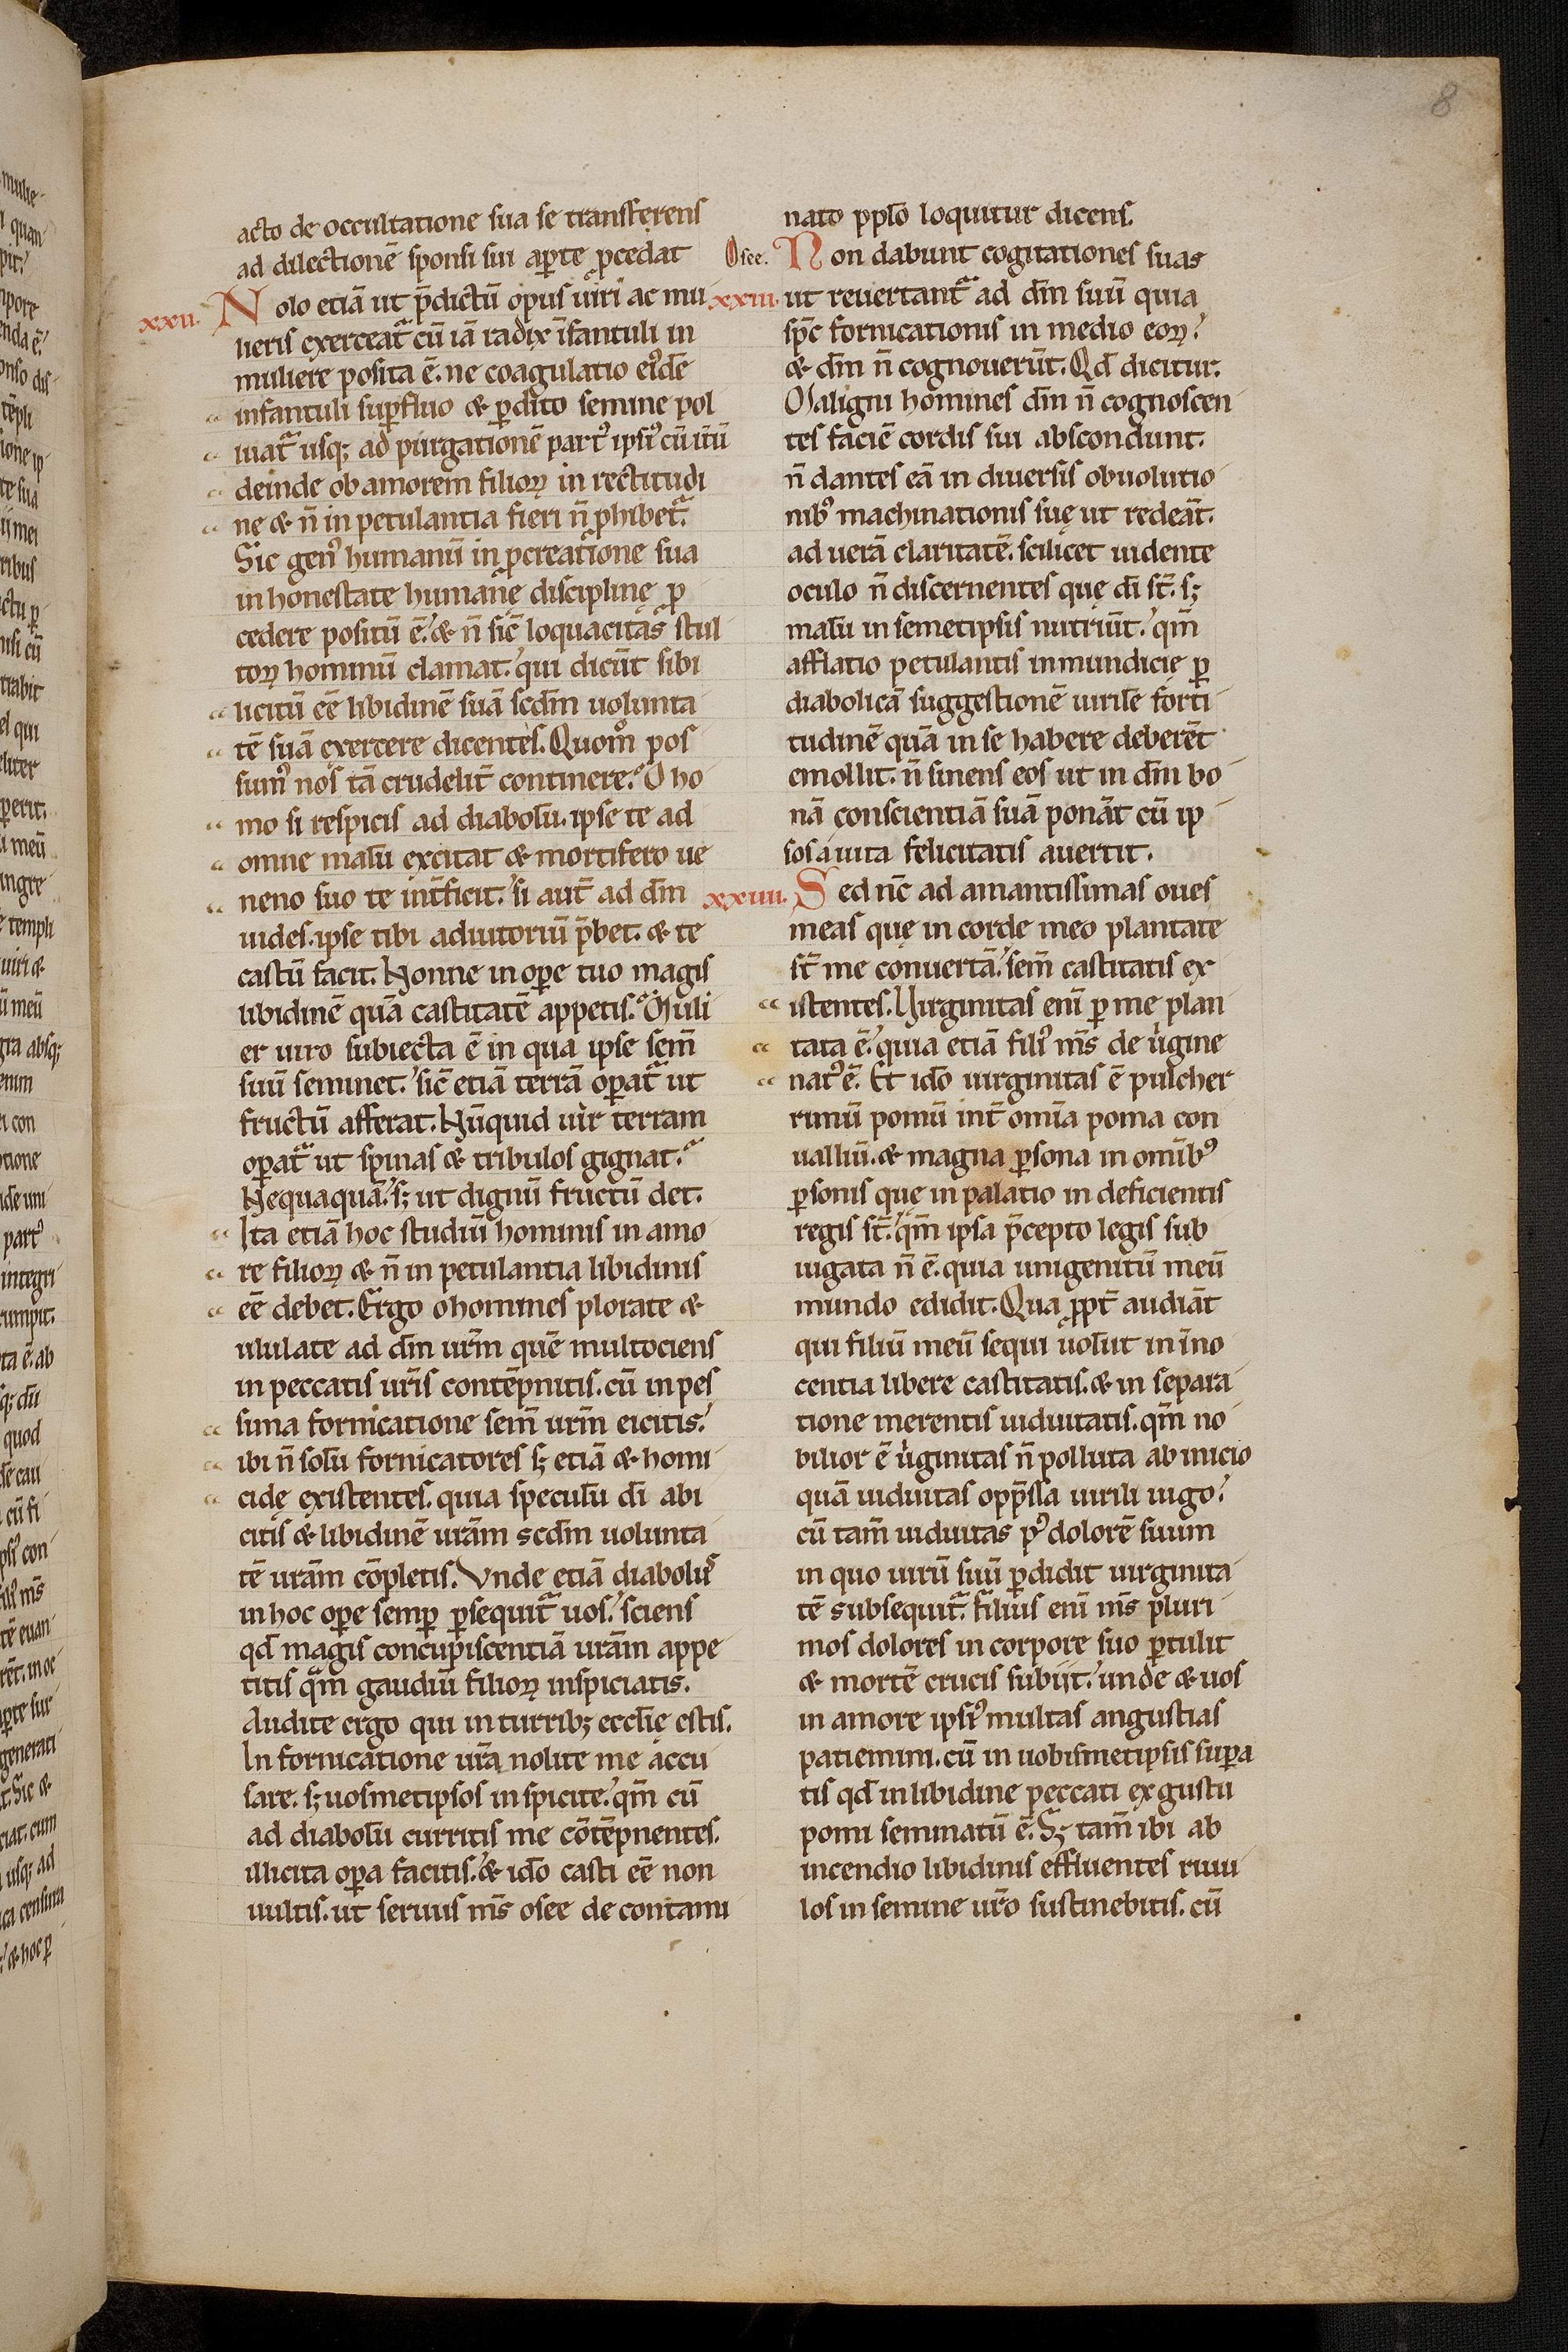 8
acto de occultatione sua se transferens
ad dilectionē sponsi sui aꝑte ꝓcedat
xxii. Nolo etiā ut p̄dictū opus uiri ac mu
lieris exerceat᷑ cū iā radix īfantuli in
muliere posita ē. ne coagulatio eiꝰdē
infantuli suꝑfluo & ꝑdito semine pol
luat᷑ usq; ad purgationē partꝰ ipsiꝰ cū itū
deinde ob amorem filioꝝ in rectitudi
ne & n̄ in petulantia fieri n̄ ꝓhibet᷑.
Sic genꝰ humanū in ꝓcreatione sua
in honestate humanę disciplinę ꝓ
cedere positū ē. & n̄ sic̄ loquacitas stul
toꝝ hominū clamat. qui dicūt sibi
licitū eē libidinē suā scdm̄ uolunta
tē suā exercere dicentes. Quom̊ pos
sumꝰ nos tā crudelit̄ continere. O ho
mo si respicis ad diabolū. ipse te ad
omne malū excitat & mortifero ue
neno suo te int̄ficit. si aut̄ ad dm̄
uides. ipse tibi adiutoriū p̄bet. & te
castū facit. Nonne in oꝑe tuo magis
libidinē quā castitatē appetis. Muli
er uiro subiecta ē in qua ipse sem̄
suū seminet. sic̄ etiā terrā oꝑat᷑ ut
fructū afferat. Nūquid uir terram
oꝑat᷑ ut spinas & tribulos gignat.
Nequaquā. s; ut dignū fructū det.
Ita etiā hoc studiū hominis in amo
re filioꝝ & n̄ in petulantia libidinis
eē debet. Ergo o homines plorate &
ululate ad dm̄ urm̄ quē multociens
in peccatis uris̄ contēpnitis. cū in pes
sima fornicatione sem̄ urm̄ eicitis.
ibi n̄ solū fornicatores s; etiā & homi
cidę existentes. quia speculū dī abi
citis & libidinē urām scdm̄ uolunta
tē urām cōpletis. Vnde etiā diabolus
in hoc oꝑe semꝑ ꝑsequit᷑ uos. sciens
qd̄ magis concupiscentiā urām appe
titis qm̄ gaudiū filioꝝ inspiciatis.
Audite ergo qui in turrib; eccl̄ię estis.
In fornicatione urā nolite me accu
sare. s; uosmetipsos inspicite. qm̄ cū
ad diabolū curritis me cōtēpnentes.
illicita oꝑa facitis. & idō casti eē non
uultis. ut seruus ms̄ osee de contami
nato ppl̄o loquitur dicens.
Osee. Non dabunt cogitationes suas
xxiii. ut reuertant᷑ ad dm̄ suū quia
spc̄ fornicationis in medio eoꝝ.
& dm̄ n̄ cognouerūt. Qd̄ dicitur.
Maligni homines dm̄ n̄ cognoscen
tes faciē cordis sui abscondunt.
n̄ dantes eā in diuersis obuolutio
nibꝰ machinationis suę ut redeāt.
ad uerā claritatē. scilicet uidente
oculo n̄ discernentes quę dī st̄. s;
malū in semetipsis nutriūt. qm̄
afflatio petulantis inmundicię ꝑ
diabolicā suggestionē uirilē forti
tudinē quā in se habere deberēt
emollit. n̄ sinens eos ut in dm̄ bo
nā conscientiā suā ponāt cū ip
sos a uita felicitatis auertit.
xxiiii. Sed nc̄ ad amantissimas oues
meas quę in corde meo plantate
st̄ me conuertā. sem̄ castitatis ex
istentes. Virginitas enī ꝑ me plan
tata ē. quia etiā filiꝰ ms̄ de uigine
natꝰ ē. Et idō uirginitas ē pulcher
rimū pomū int̄ omīa poma con
ualliū. & magna ꝑsona in omībꝰ
ꝑsonis quę in palatio in deficientis
regis st̄. qm̄ ipsa p̄cepto legis sub
iugata n̄ ē. quia unigenitū meū
mundo edidit. Qua ꝓpt̄ audiāt
qui filiū meū sequi uolūt in īno
centia libere castitatis. & in separa
tione merentis uiduitatis. qm̄ no
bilior ē uiginitas n̄ polluta ab inicio
quā uiduitas opp̄ssa uirili iugo.
cū tam̄ uiduitas pꝰ dolorē suum
in quo uirū suū ꝑdidit uirginita
tē subsequit᷑. filius enī ms̄ pluri
mos dolores in corpore suo ꝑtulit
& mortē crucis subiit. unde & uos
in amore ipsiꝰ multas angustias
patiemini. cū in uobismetipsis suꝑa
tis qd̄ in libidine peccati ex gustu
pomi seminatū ē. S; tam̄ ibi ab
incendio libidinis effluentes riuu
los in semine urō sustinebitis. cū